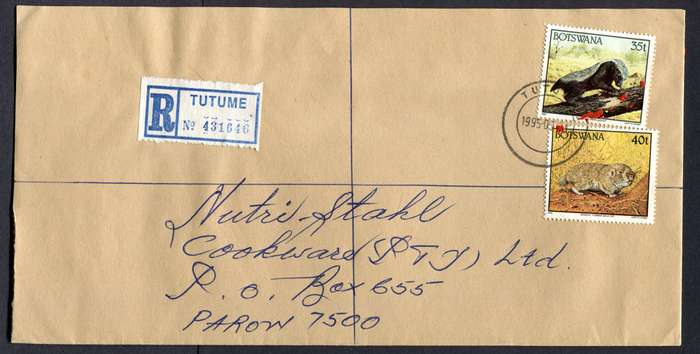 BOTSWANA
35t
R
TUTUME
Nº 431646
TU
1995
BOTSWANA
40t
Nutri-Stahl
Cookware (PTY) Ltd.
P. O. Box 655
PAROW 7500